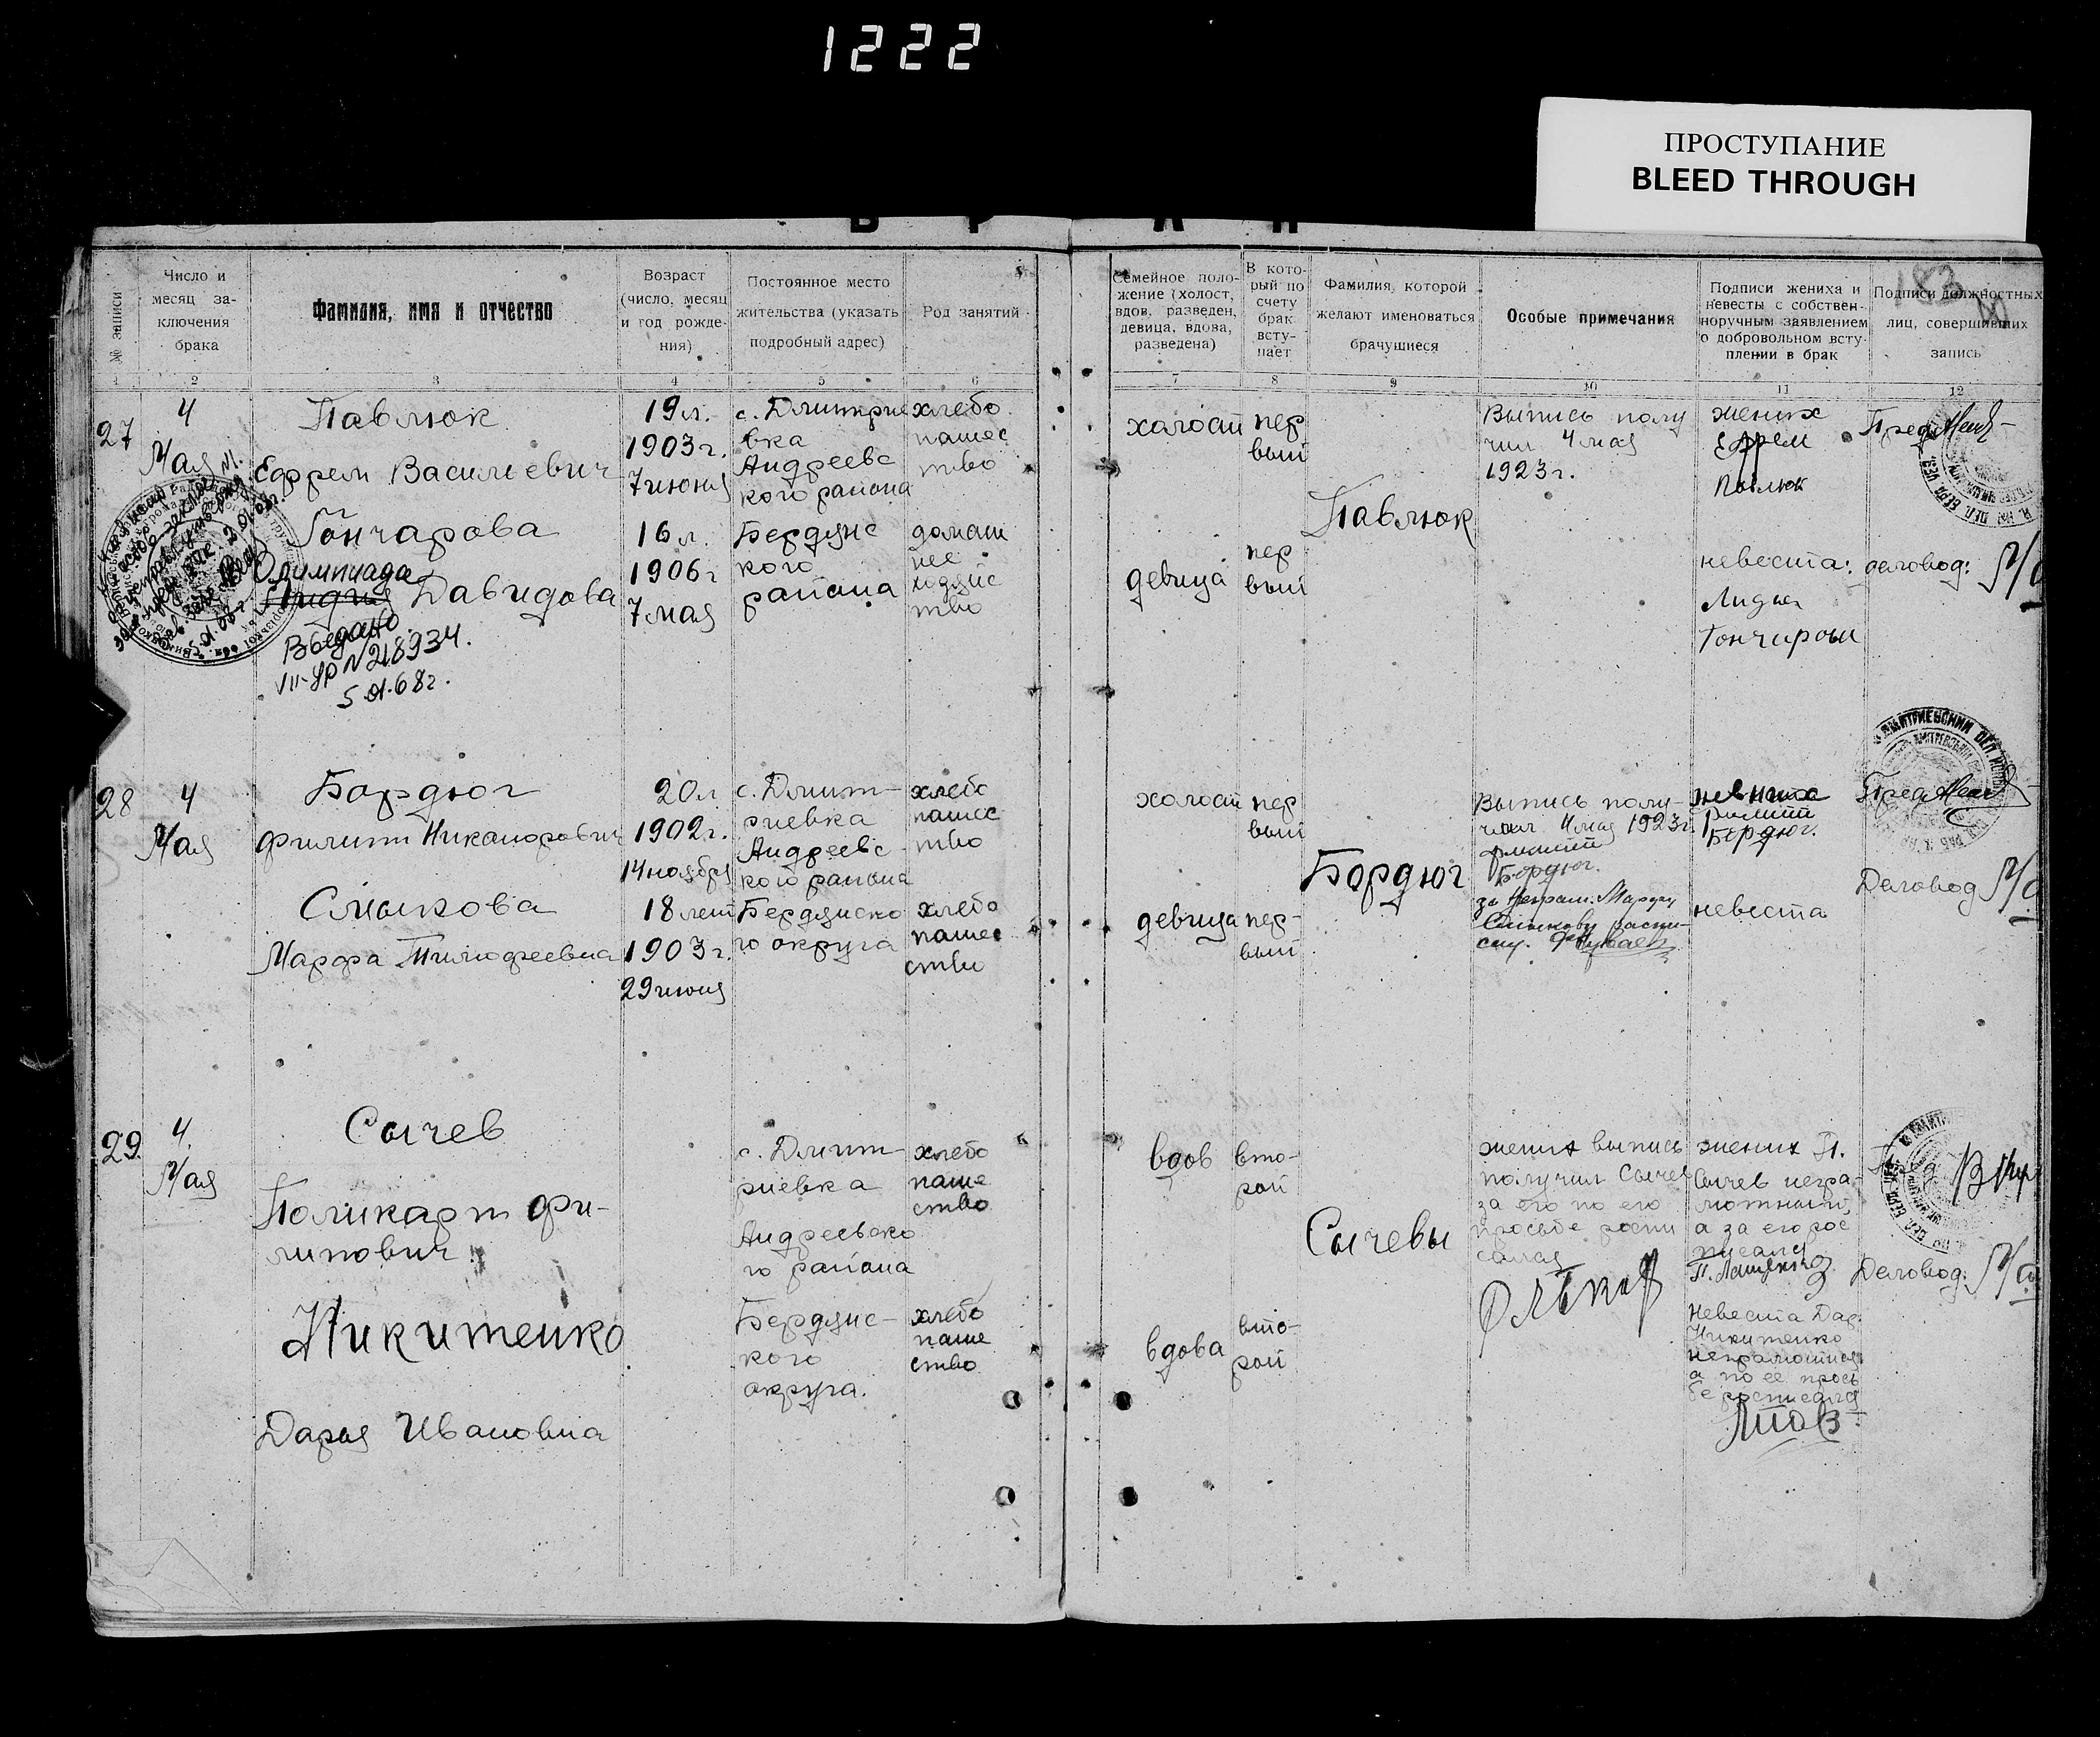 1222
ПРОСТУПАНИЕ
BLEED THROUGH
№ записи
Число и
месяц за-
ключения
брака
Фамилия, имя и отчество
Возраст
(число, месяц
и год рожде-
ния)
Постоянное место
жительства (указать
подробный адрес)
Род занятий
Семейное поло-
жение (холост,
вдов, разведен,
девица, вдова,
разведена)
В кото-
рый по
счету
брак
всту-
пает
Фамилия, которой
желают именоваться
брачущиеся
Особые примечания
Подписи жениха и
невесты с собствен-
норучным заявлением
о добровольном всту-
плении в брак
Подписи должностных
лиц, совершивших
запись
183
1
2
3
4
5
6
7
8
9
10
11
12
27
4
Мая
Павлюк
Ефрем Васильевич
19 л.
1903 г.
7 июня
с. Дмитрие
вка
Андреевс
кого района
хлебо
пашес
тво
холост
пер
вый
Павлюк
Выпись полу
чил 4 мая
1923 г.
жених
Ефрем
Павлюк
Пред
Гончарова
Олимпиада
Лидия Давидова
16 л.
1906 г
7 мая
Бердянс
кого
района
домаш
нее
хозяйс
тво
девица
пер
вый
невеста:
Лидия
Гончарова
деловод:
Выдано
VII-ЯР N 218934.
5.01.68 г.
28
4
Мая
Бордюг
Филипп Никанорович
20 л
1902 г.
14 ноября
с. Дмит-
риевка
Андреевс
кого района
хлебо
пашес
тво
холост
пер
вый
Бордюг
Выпись полу-
чил 4 мая 1923 г.
Филипп
Бордюг.
жених
Филипп
Бордюг.
Пред
Смыкова
Марфа Тимофеевна
18 лет
1903 г.
29 июня
Бердянско
го округа
хлебо
пашес
ство
девица
пер-
вый
за Марфу
Смыкову распи-
невеста
Деловод
29
4.
Мая
Сычев
Поликарп Фи-
липович
с. Дмит-
риевка
Андреевско
го района
хлебо
паше
ство
вдов
вто-
рой
Сычевы
жених выпись
получил Сычев
за его по его
просьбе роспи
сался
жених П.
Сычев негра-
мотный,
а за его рос
писался
Деловод:
Никитенко
Дарья Ивановна
Бердянс-
кого
округа.
хлебо
паше
ство
вдова
вто-
рой
невеста Дар.
Никитенко
неграмотная
а по ее прось
бе росписался